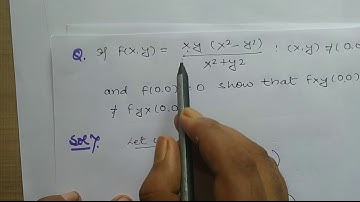 Q. If f(x,y) = x.y (x² - y²) ; (x,y) ≠ (0,0
x² + y2
and f(0,0) 0 show that fxy(0,0)
≠ fyx(0,0
Sol⁷.
Let